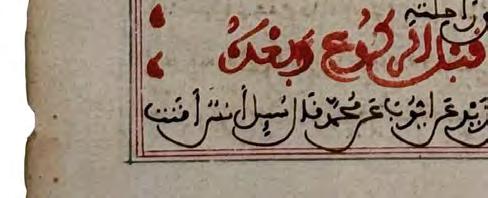 راحلته
قبل الركوع وبعده
زيد عن ايوب عن محمد قال سيل أنس أقنت